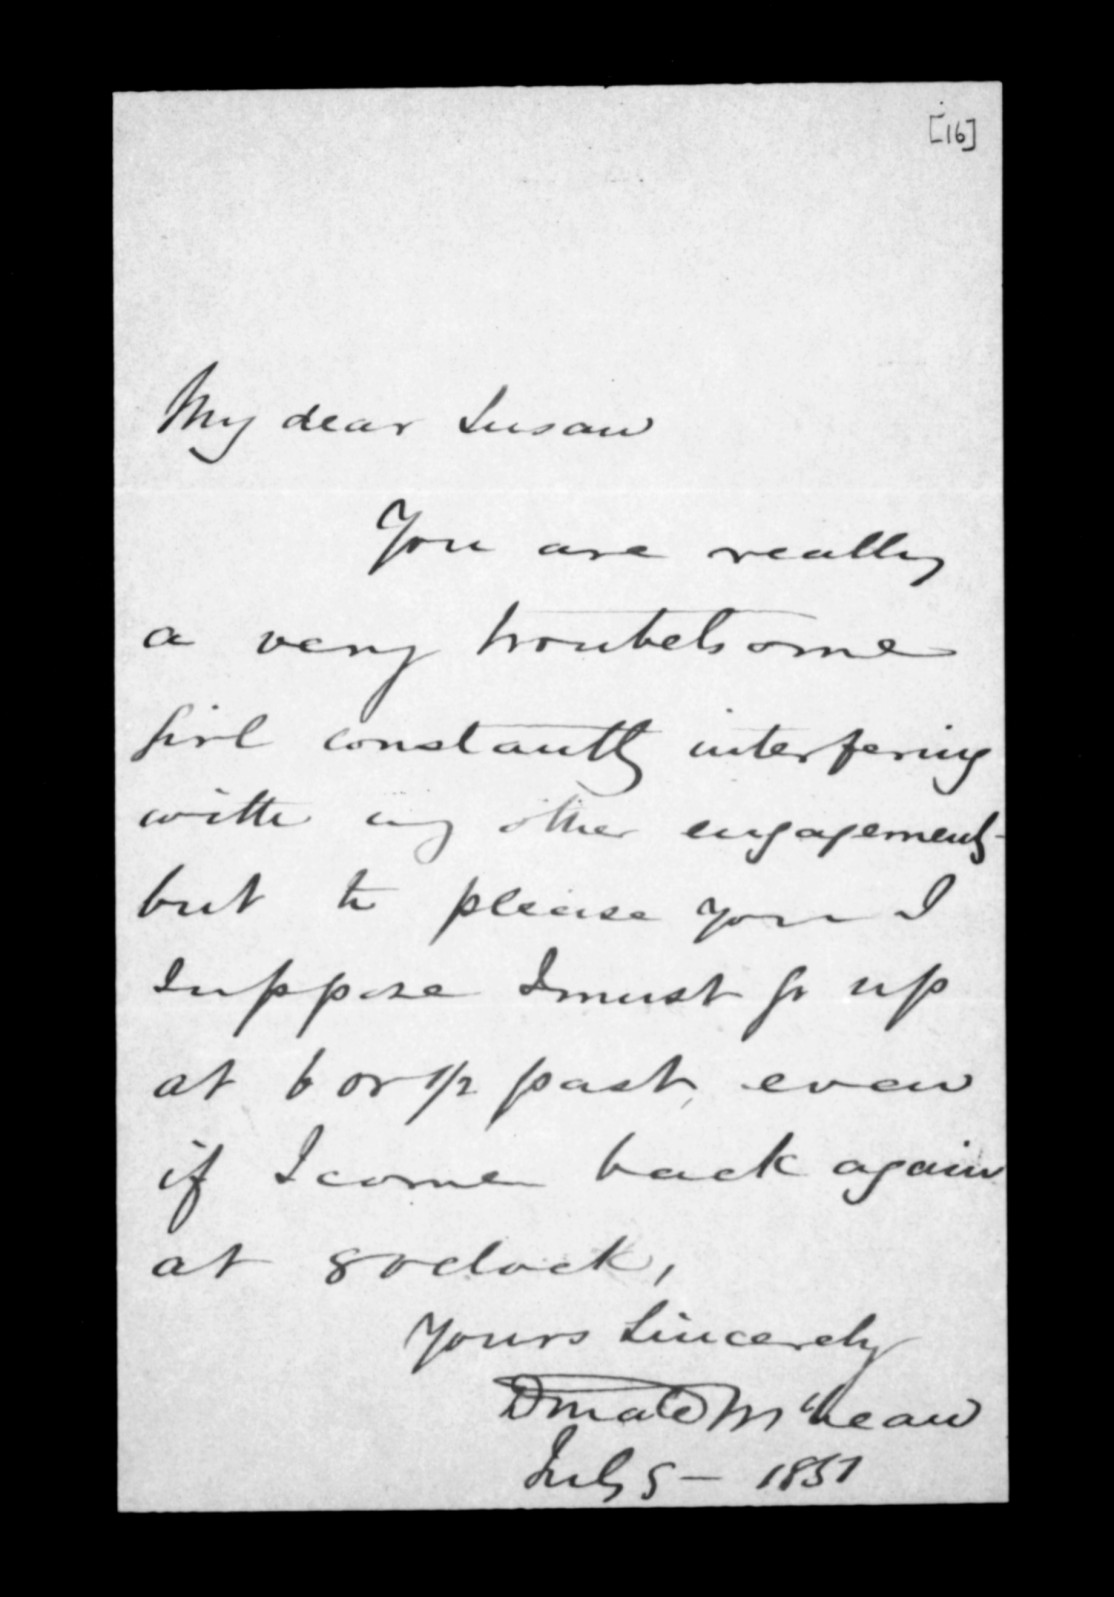 [16]
My dear Susan
You are really
a very troubelsome
girl constantly interfering
with my other engagements
but to please you I
suppose I must go up
at 6 or 1/2 past, even
if I come back again
at 8 oclock,
Yours Sincerely
Donald McLean
July 5 - 1851